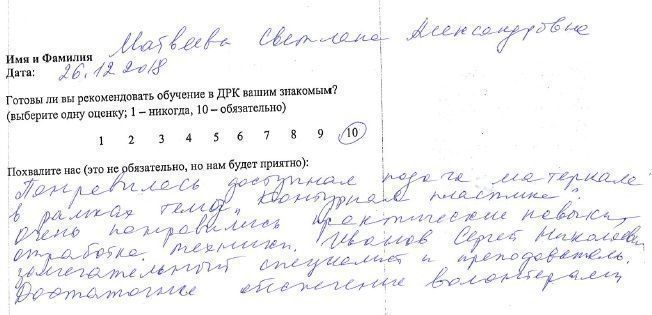 Имя и Фамилия Матвеева Светлана Александровна
Дата: 26.12.2018
Готовы ли вы рекомендовать обучение в ДРК вашим знакомым?
(выберите одну оценку; 1 – никогда, 10 – обязательно)
1 2 3 4 5 6 7 8 9 10
Похвалите нас (это не обязательно, но нам будет приятно):
Понравилась доступная подача материала
в рамках темы „Контурная пластика".
Очень понравились практические навыки,
отработка техники. Иванов Сергей Николаевич
замечательный специалист и преподаватель.
Достаточное обеспечение волонтерами